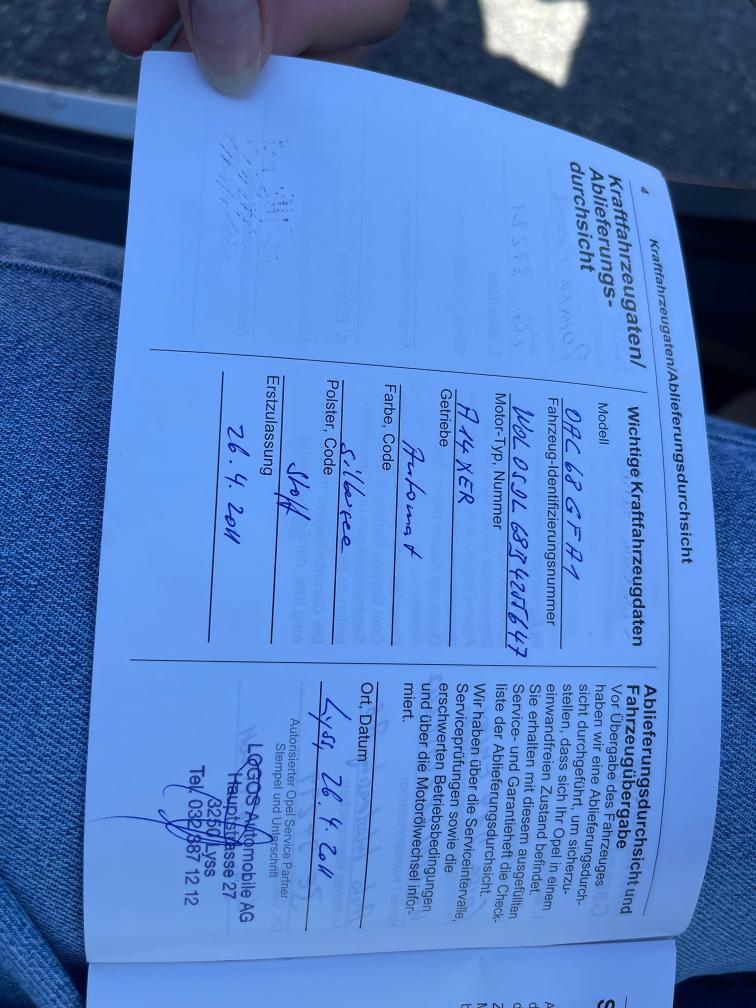 4
Kraftfahrzeugaten/Ablieferungsdurchsicht
Kraftfahrzeugaten/
Ablieferungs-
durchsicht
Wichtige Kraftfahrzeugdaten
Modell
OAC 68 GFA1
Fahrzeug-Identifizierungsnummer
Motor-Typ, Nummer
A 14 XER
Getriebe
Automat
Farbe, Code
silbersee
Polster, Code
Stoff
Erstzulassung
26. 4. 2011
Ablieferungsdurchsicht und
Fahrzeugübergabe
Vor Übergabe des Fahrzeuges
haben wir eine Ablieferungsdurch-
sicht durchgeführt, um sicherzu-
stellen, dass sich Ihr Opel in einem
einwandfreien Zustand befindet.
Sie erhalten mit diesem ausgefüllten
Service- und Garantieheft die Check-
liste der Ablieferungsdurchsicht.
Wir haben über die Serviceintervalle,
Serviceprüfungen sowie die
erschwerten Betriebsbedingungen
und über die Motorölwechsel infor-
miert.
Ort, Datum
Lyss, 26. 4. 2011
Autorisierter Opel Service Partner
Stempel und Unterschrift
LOGOS Automobile AG
Hauptstrasse 27
3250 Lyss
Tel. 032 387 12 12